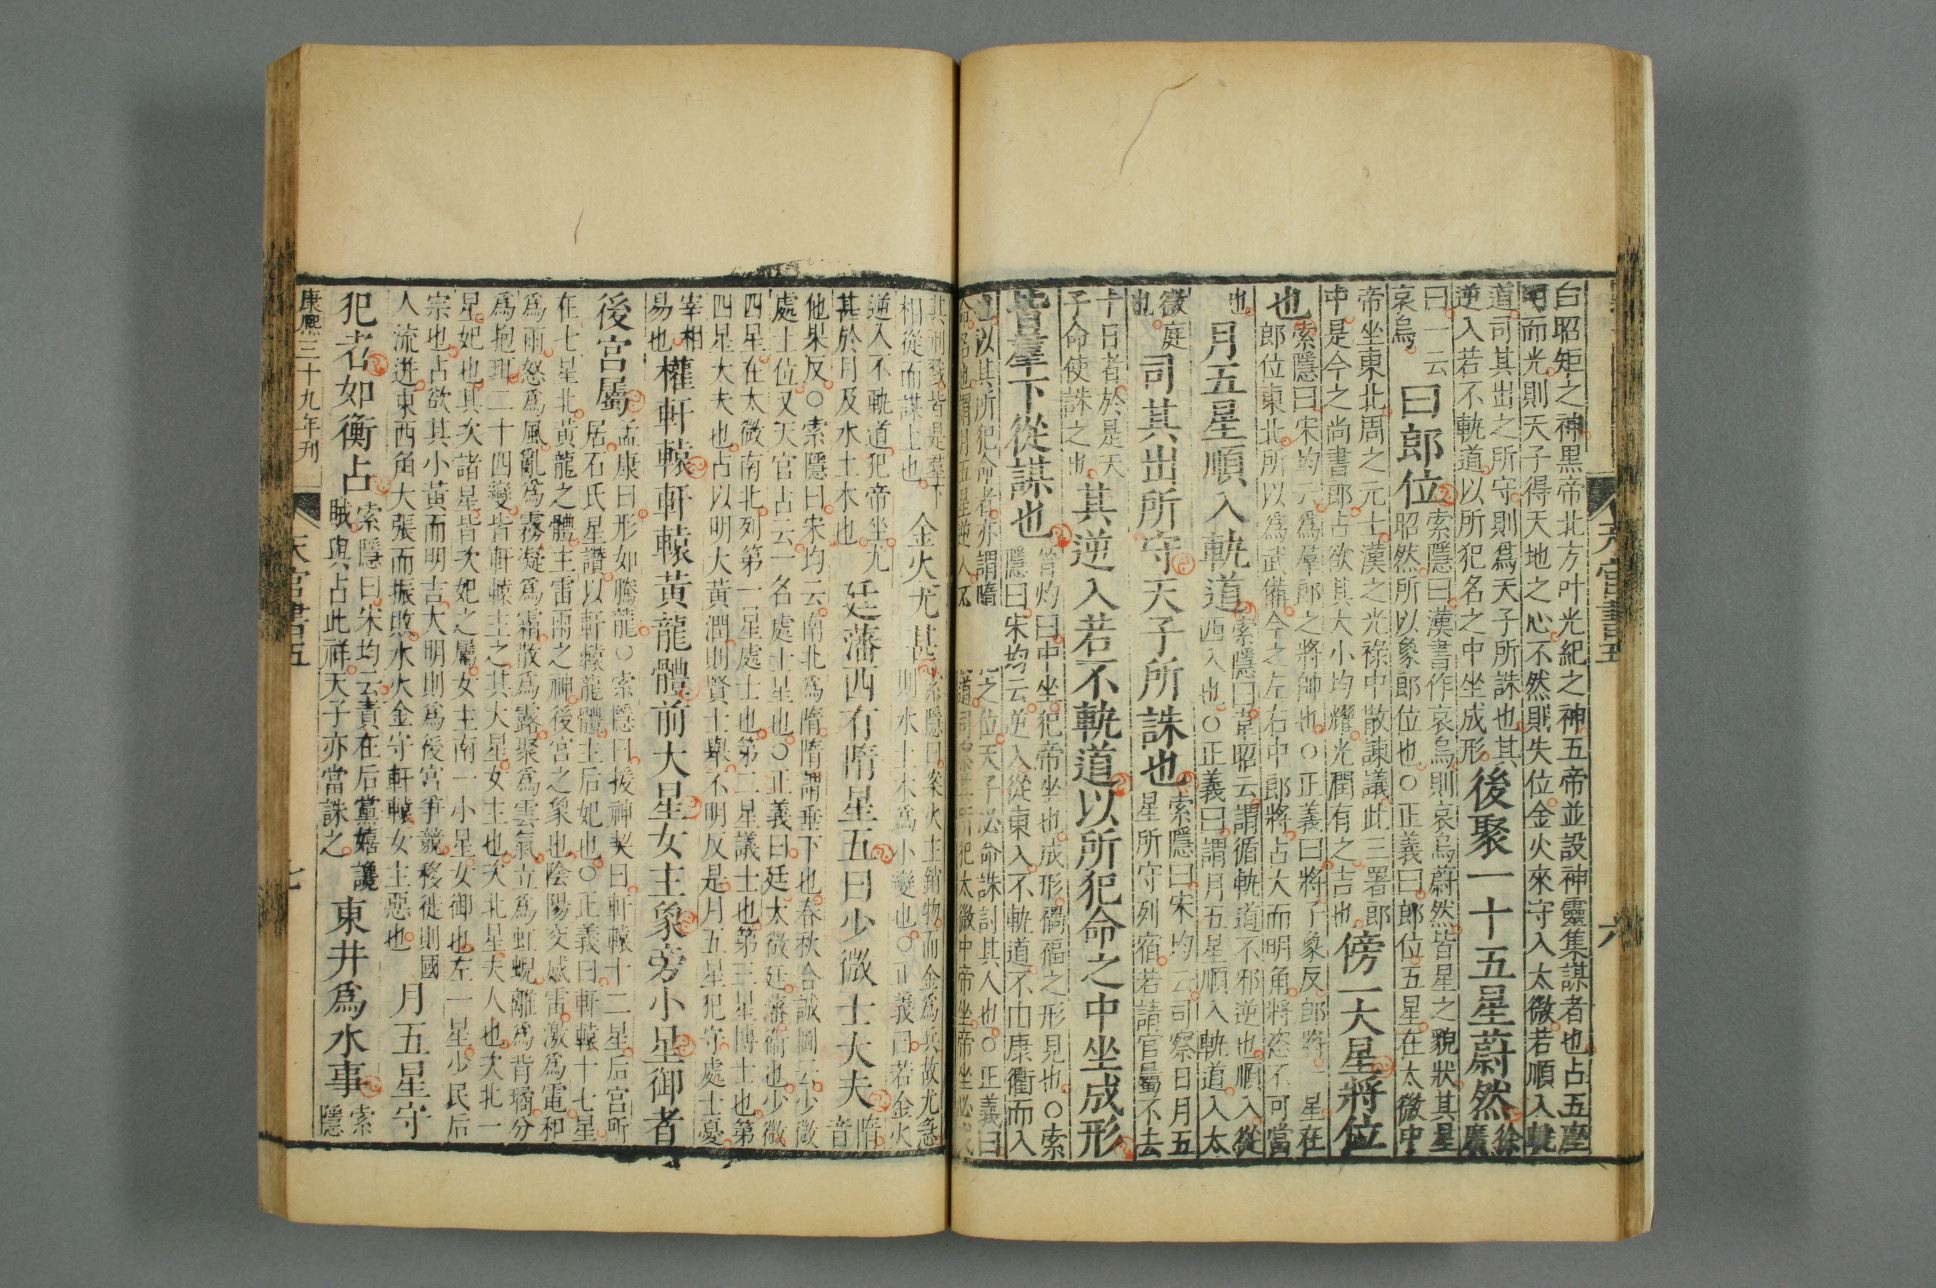 白昭矩之神黑帝北方叶光紀之神五帝並設神靈集謀者也占五座
明而光則天子得天地之心不然則失位金火來守入太微若順入軌
道司其出之所守則爲天子所誅也其
逆入若不軌道以所犯名之中坐成形
後聚一十五星蔚然
徐
廣
曰一云
哀烏
曰郎位
索隱曰漢書作哀烏則哀烏蔚然皆星之貌狀其星
昭然所以象郎位也○正義曰郎位五星在太微中
帝坐東北周之元士漢之光祿中散諫議此三署郎
中是今之尚書郎占欲其大小均耀光潤有之吉也
傍一大星將位
也
索隱曰宋均云爲羣郎之將帥也○正義曰將子象反郎將一星在
郎位東北所以爲武備今之左右中郎將占大而明角將恣不可當
也
月五星順入軌道
索隱曰韋昭云謂循軌道不邪逆也順入從
西入也○正義曰謂月五星順入軌道入太
微庭
也
司其出所守天子所誅也
索隱曰宋均云司察日月五
星所守列宿若請官屬不去
十日者於是天
子命使誅之也
其逆入若不軌道以所犯命之中坐成形
皆羣下從謀也
晉灼曰中坐犯帝坐也成形禍福之形見也○索
隱曰宋均云逆入從東入不軌道不由康衢而入
也以其所犯命者亦謂隋之位天子必命誅討其人也○正義曰
命名也謂月五星逆入不軌道司察其所犯太微中帝坐帝坐必成
天官書五
六
其刑戮皆是羣下
相從而謀上也
金火尤甚
索隱曰案火主銷物而金爲兵故尤急
則水土木爲小變也○正義曰若金火
逆入不軌道犯帝坐尤
甚於月及水土木也
廷藩西有隋星五曰少微士大夫
隋
音
他果反○索隱曰宋均云南北爲隋隋謂垂下也春秋合誠圖云少微
處士位又天官占云一名處士星也○正義曰廷太微廷藩衞也少微
四星在太微南北列第一星處士也第二星議士也第三星博士也第
四星大夫也占以明大黃潤則賢士舉不明反是月五星犯守處士憂
宰相
易也
權軒轅軒轅黃龍體前大星女主象旁小星御者
後宮屬
孟康曰形如騰龍○索隱曰援神契曰軒轅十二星后宮所
居石氏星讚以軒轅龍體主后妃也○正義曰軒轅十七星
在七星北黃龍之體主雷雨之神後宮之象也陰陽交感雷激爲電和
爲雨怒爲風亂爲霧凝爲霜散爲露聚爲雲氣立爲虹蜺離爲背璚分
爲抱珥二十四變皆軒轅主之其大星女主也次北一星夫人也次北一
星妃也其次諸星皆次妃之屬女主南一小星女御也左一星少民后
宗也占欲其小黃而明吉大明則爲後宮爭競移徙則國
人流迸東西角大張而振敗水火金守軒轅女主惡也
月五星守
犯者如衡占
索隱曰宋均云責在后黨嬉讒
賊興占此祥天子亦當誅之
東井爲水事
索
隱
康熙三十九年刊
天官書五
七